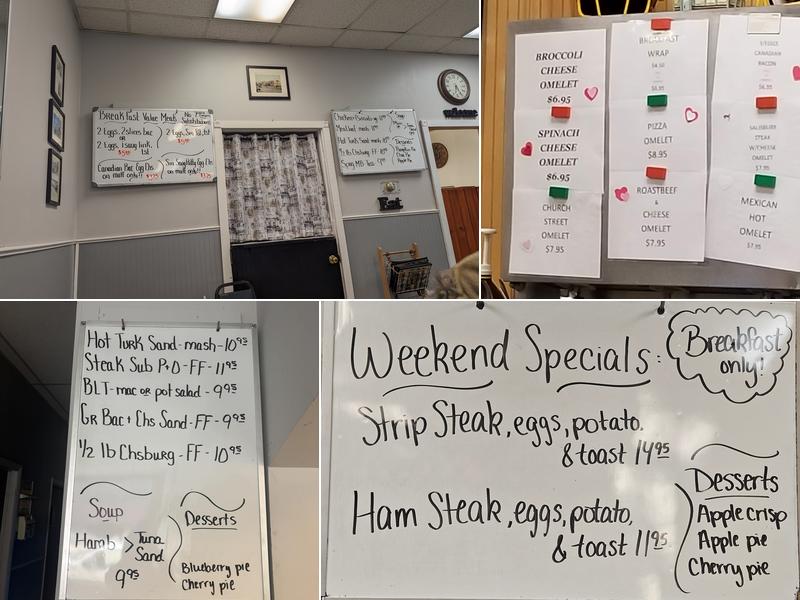 Breakfast Value Meals No Substitutions
2 Eggs, 2 slices bac
or
2 Eggs, 1 saug link,
tst
Canadian Bac Egg Chs
on muff only!!
on muff only!
Soup
Desserts
1/2 lb Chsburg - FF - 10⁹⁵
Eat
BROCCOLI
CHEESE
OMELET
$6.95
SPINACH
CHEESE
OMELET
$6.95
CHURCH
STREET
OMELET
$7.95
BREAKFAST
WRAP
PIZZA
OMELET
$8.95
ROASTBEEF
&
CHEESE
OMELET
$7.95
CANADIAN
BACON
$6.95
SALISBURY
STEAK
W/CHEESE
OMELET
$7.95
MEXICAN
HOT
OMELET
$7.95
Hot Turk Sand - mash - 10⁹⁵
Steak Sub P+O - FF - 11⁹⁵
BLT - mac or pot salad - 9⁹⁵
Gr Bac + Chs Sand - FF - 9⁹⁵
1/2 lb Chsburg - FF - 10⁹⁵
Soup
Hamb > Tuna
Sand
9⁹⁵
Desserts
Blueberry pie
Cherry pie
Weekend Specials:
Breakfast
only!
Strip Steak, eggs, potato.
& toast 14⁹⁵
Ham Steak, eggs, potato,
& toast 11⁹⁵
Desserts
Apple crisp
Apple pie
Cherry pie